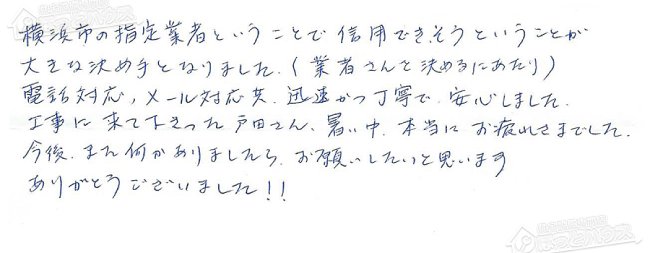 横浜市の指定業者ということで信用できそうということが
大きな決め手となりました.(業者さんを決めるにあたり)
電話対応,メール対応共、迅速かつ丁寧で、安心しました.
工事に来て下さった戸田さん、暑い中、本当にお疲れさまでした.
今後、また何かありましたら、お願いしたいと思います
ありがとうございました!!